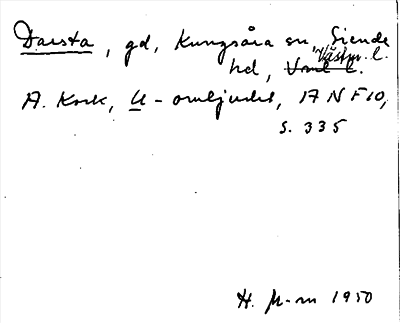 Darsta, gd, Kungsåra sn, Siende
hd, Västm. l.
A. Kock, U-omljudet, i ANF 10,
s. 335
H. M-m 1950